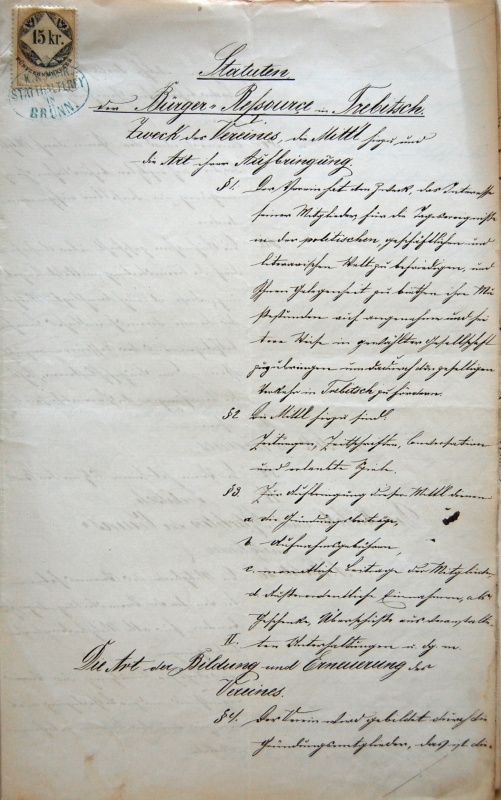 15 kr.
K. K. 
STATTHALTEREY
IN
BRÜNN.
Statuten
der Bürger-Ressource in Trebitsch.
Zweck des Vereines, die Mittl hiezu und
die Art ihrer Aufbringung.
§1. Der Verein hat den Zweck, das Interesse
seiner Mitglieder für die Tagesereignisse
in der politischen, geschäftlichen und
literarischen Welt zu befriedigen, und
Ihnen Gelegenheit zu biethen ihre Mu-
ßestunden auf angenehme und hei-
tere Weise in gewählter Gesellschaft
zuzubringen um dadurch den geselligen
Verkehr in Trebitsch zu fördern.
§2. Die Mittl hiezu sind:
Zeitungen, Zeitschriften, Conversation
und erlaubte Spiele.
§3. Zur Aufbringung dieser Mittl dienen
a. die Gründungsbeiträge,
b. Aufnahmsgebühren,
c. monatliche Beiträge der Mitglieder,
d. Außerordentliche Einnahmen, als
Geschenke, Überschüße aus veranstalte-
ten Unterhaltungen u. dg. m.
II.
Die Art der Bildung und Erneuerung des
Vereines.
§4. Der Verein wird gebildet durch die
Gründungsmitglieder, das ist die-